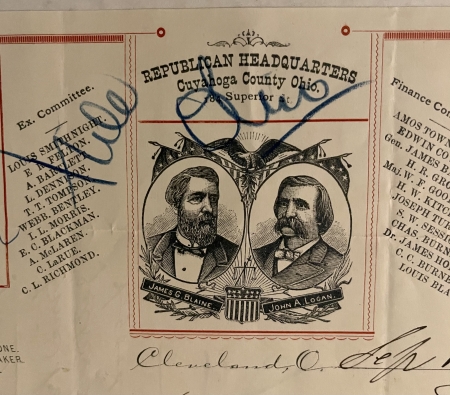 REPUBLICAN HEADQUARTERS
Cuyahoga County Ohio.
Superior St.
Ex. Committee.
LOUIS SMITHNIGHT.
FELTON.
A. BARTLETT.
L. DENNISON.
T. T. TOMPSON.
WEBB. BENTLEY.
L. MORRIS.
E. C. BLACKMAN.
A. McLAREN.
C. LaRUE.
C. L. RICHMOND.
Finance Co
AMOS TOWN
EDWIN CO
Gen. JAMES B
R. GRO
Maj. W. F. GOO
H. W. KITC
JOSEPH TUR
S. W. SESSI
CHAS. BURN
Dr. JAMES HO
C. C. BURNE
LOUIS BLA
JAMES G. BLAINE.
JOHN A. LOGAN.
ONE.
AKER.
Cleveland, O. Sep